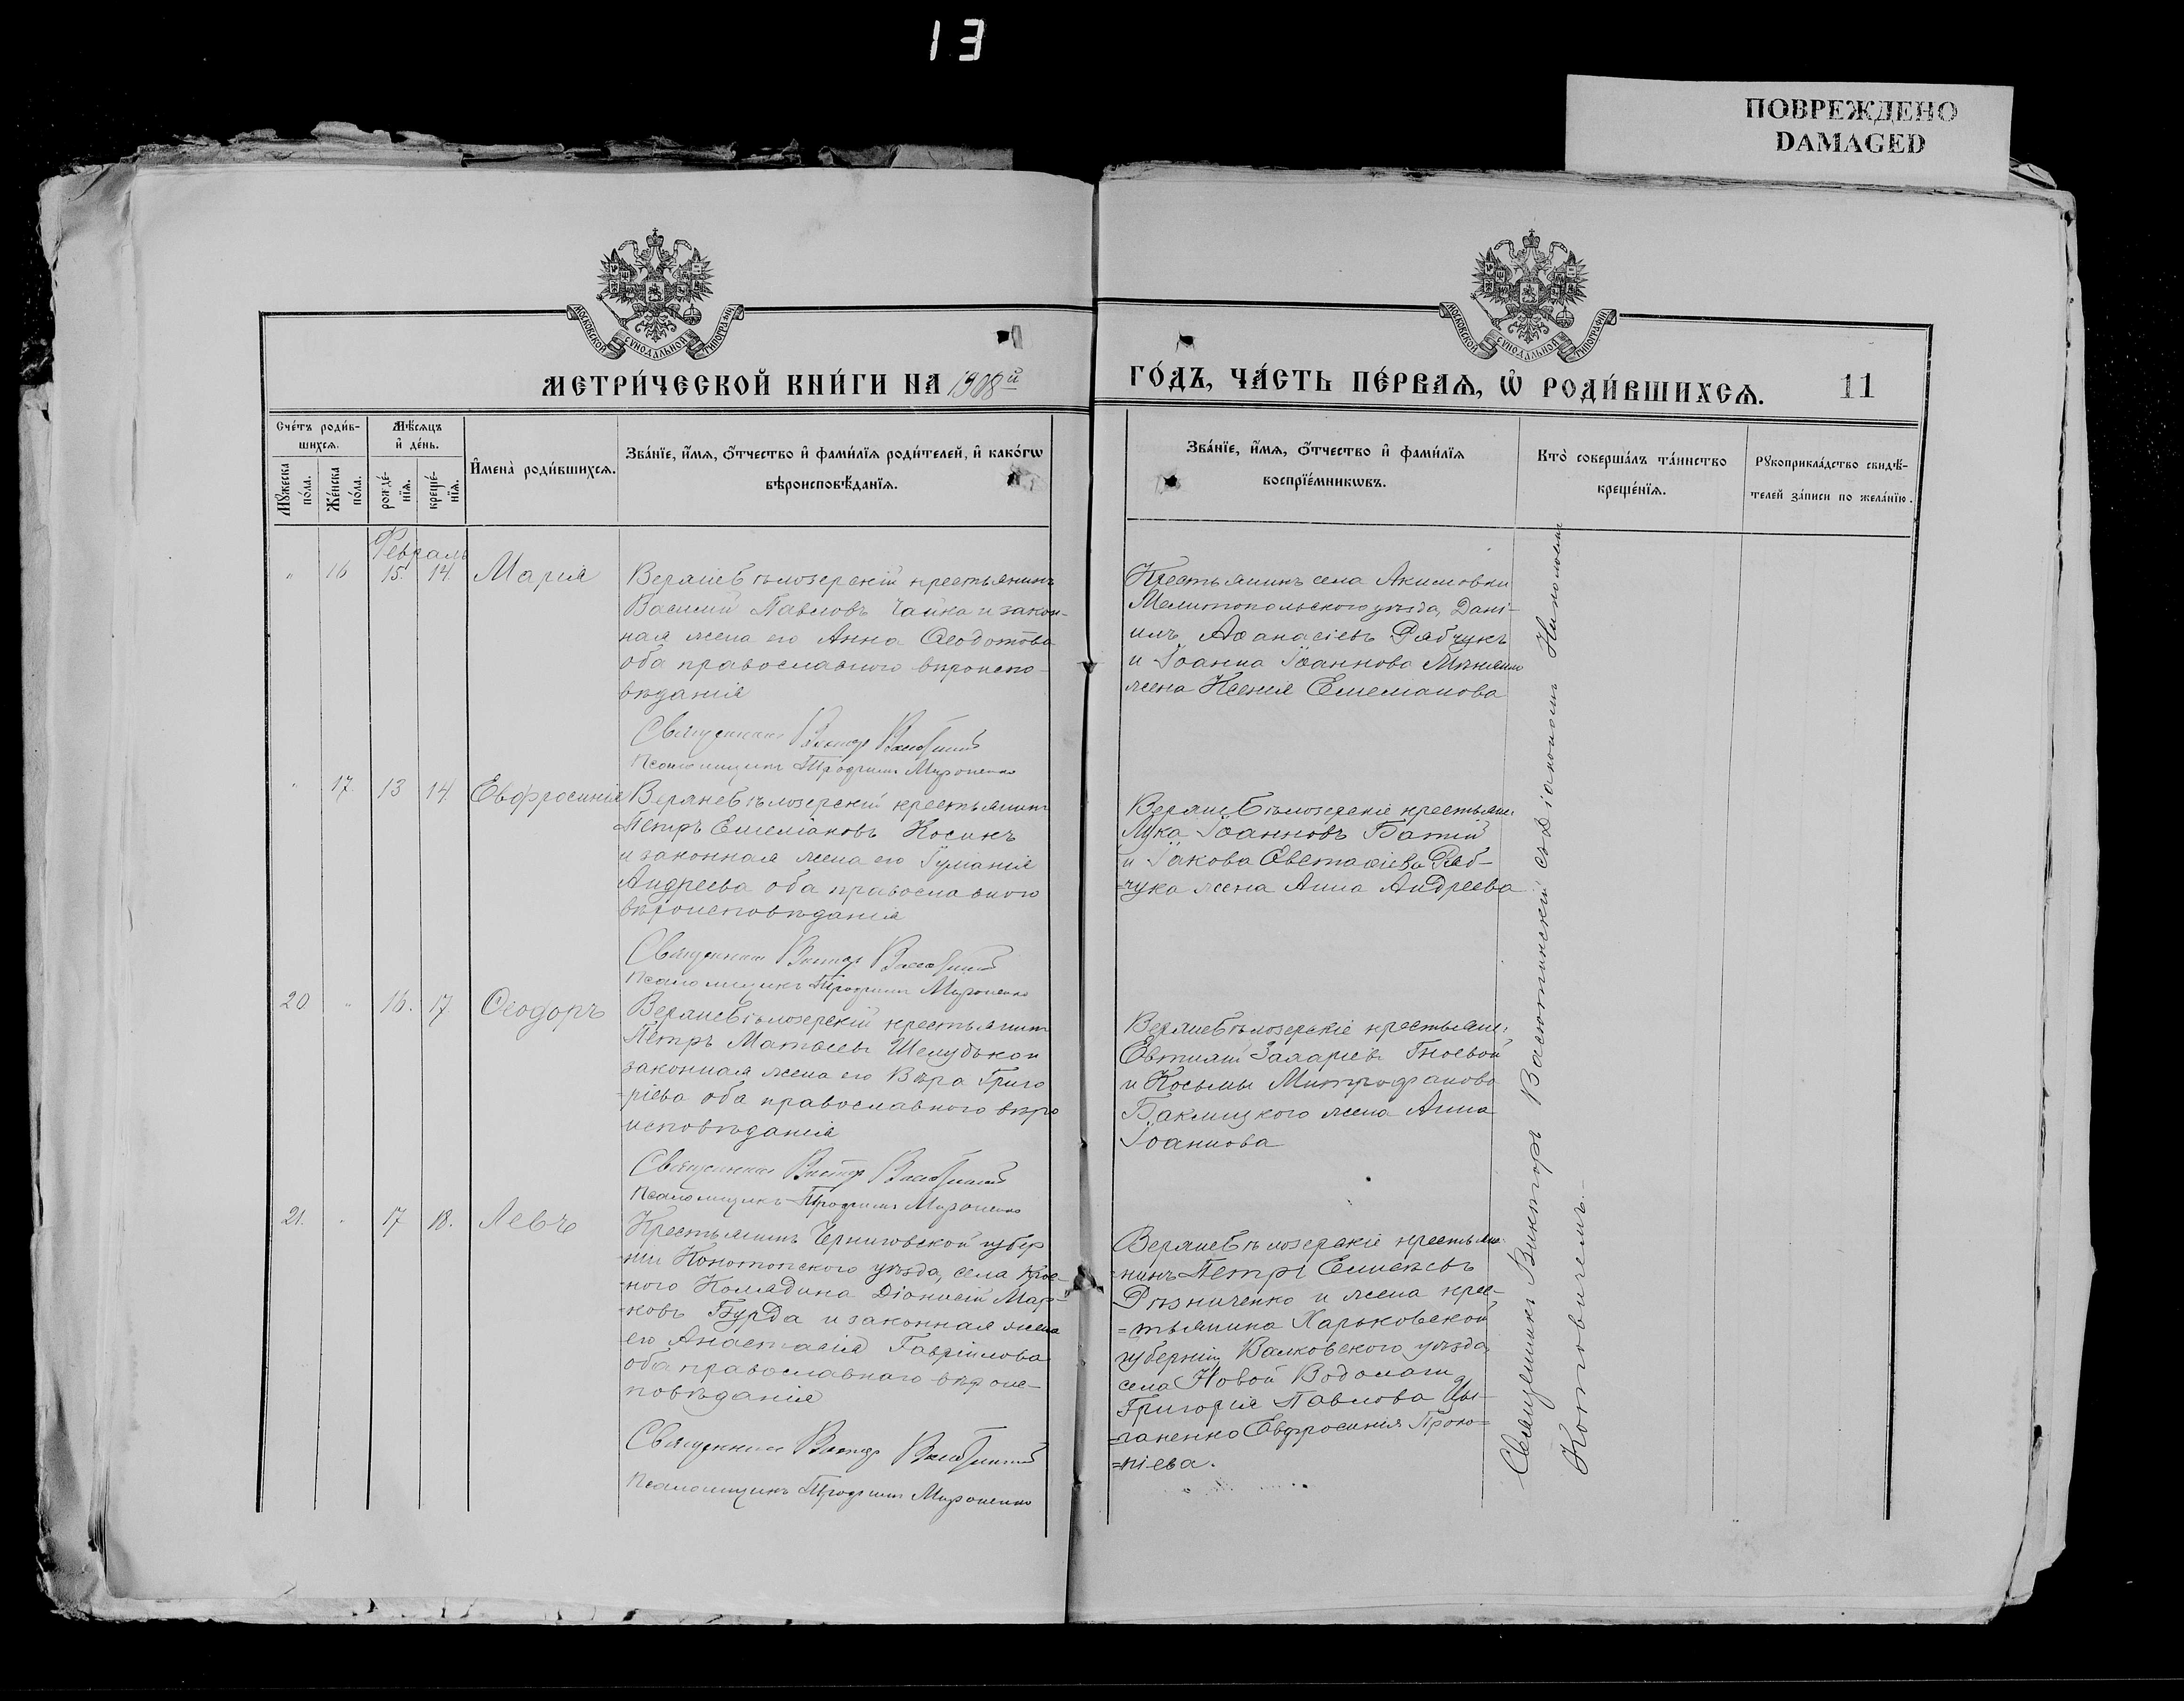 13
ПОВРЕЖДЕНО
DAMAGED
МОСКОВСКОЙ СѴНОДАЛЬНОЙ ТИПОГРАФІИ
МОСКОВСКОЙ СѴНОДАЛЬНОЙ ТИПОГРАФІИ
МЕТРИ́ЧЕСКОЙ КНИ́ГИ НА 1908й
ГО́ДЪ, ЧА́СТЬ ПЕ́РВАѦ, Ѡ҆ РОДИ́ВШИХСѦ.
11
Сче́тъ роди́в-
шихсѧ.
Мѣ́сѧцъ
и҆ де́нь.
Мꙋ́жеска по́ла.
Же́нска по́ла.
рожде́-нїѧ.
креще́-нїѧ.
И҆мена̀ роди́вшихсѧ.
Зва́нїе, и҆́мѧ, о҆́тчество и҆ фами́лїѧ роди́телей, и҆ како́гѡ
вѣроисповѣ́данїѧ.
Зва́нїе, и҆́мѧ, о҆́тчество и҆ фами́лїѧ
воспрїе́мникѡвъ.
Кто̀ соверша́лъ та́инство
креще́нїѧ.
Рꙋкоприкла́дство свидѣ́-
телей за́писи по жела́нїю.
Февраль
" 16 15. 14. Марія
Верхнебѣлозерскій крестьянинъ
Василий Павловъ Чайка и закон-
ная жена его Анна Ѳеодотова
оба православного вѣроиспо-
вѣданія
Священникъ Викторъ
Псаломщикъ Трофимъ Мироненко
Крестьянинъ села Акимовки
Мелитопольского уѣзда, Дані-
илъ Аѳанасіевъ Рябчукъ
и Іоанна Іоаннова
жена Ксенія Емеліанова
" 17. 13 14. Евфросинія
Верхнебѣлозерскій крестьянинъ
Петръ Емеліановъ Косикъ
и законная жена его Іуліанія
Андреева оба православного
вѣроисповѣданія
Священникъ Викторъ
Псаломщикъ Трофимъ Мироненко
Верхнебѣлозерскіе крестьяне:
Лука Іоанновъ Батій
и Іакова Евстаѳіева Ряб-
=чука жена Анна Андреева
20 " 16. 17. Ѳеодоръ
Верхнебѣлозерскій крестьянинъ
Петръ Матѳеевъ Шелудько и
законная жена его Вѣра Григо
-ріева оба православного вѣро
исповѣданія
Священникъ Викторъ
Псаломщикъ Трофимъ Мироненко
Верхнебѣлозерскіе крестьяне:
Евтихій Захаріевъ Гноевой
и Косьмы Митрофанова
Баклицкого жена Анна
Іоаннова
21. " 17 18. Левъ
Крестьянинъ Черниговской губер
-ніи Конотопского уѣзда, села Крас-
-ного Колядина Діонисій Мар-
-ковъ Бурда и законная жена
его Анастасія Гавріилова
оба православнаго вѣроис-
повѣданія
Священникъ Викторъ
Псаломщикъ Трофимъ Мироненко
Верхнебѣлозерскіе крестья
-нинъ Петръ
Рѣзниченко и жена крес-
=тьянина Харьковской
губерніи, Валковского уѣзда,
села Новой Водолаги
Григорія Павлова Цы-
=ганенко Евфросинія Проко-
=піева.
Священникъ Викторъ съ Діакономъ Николаемъ